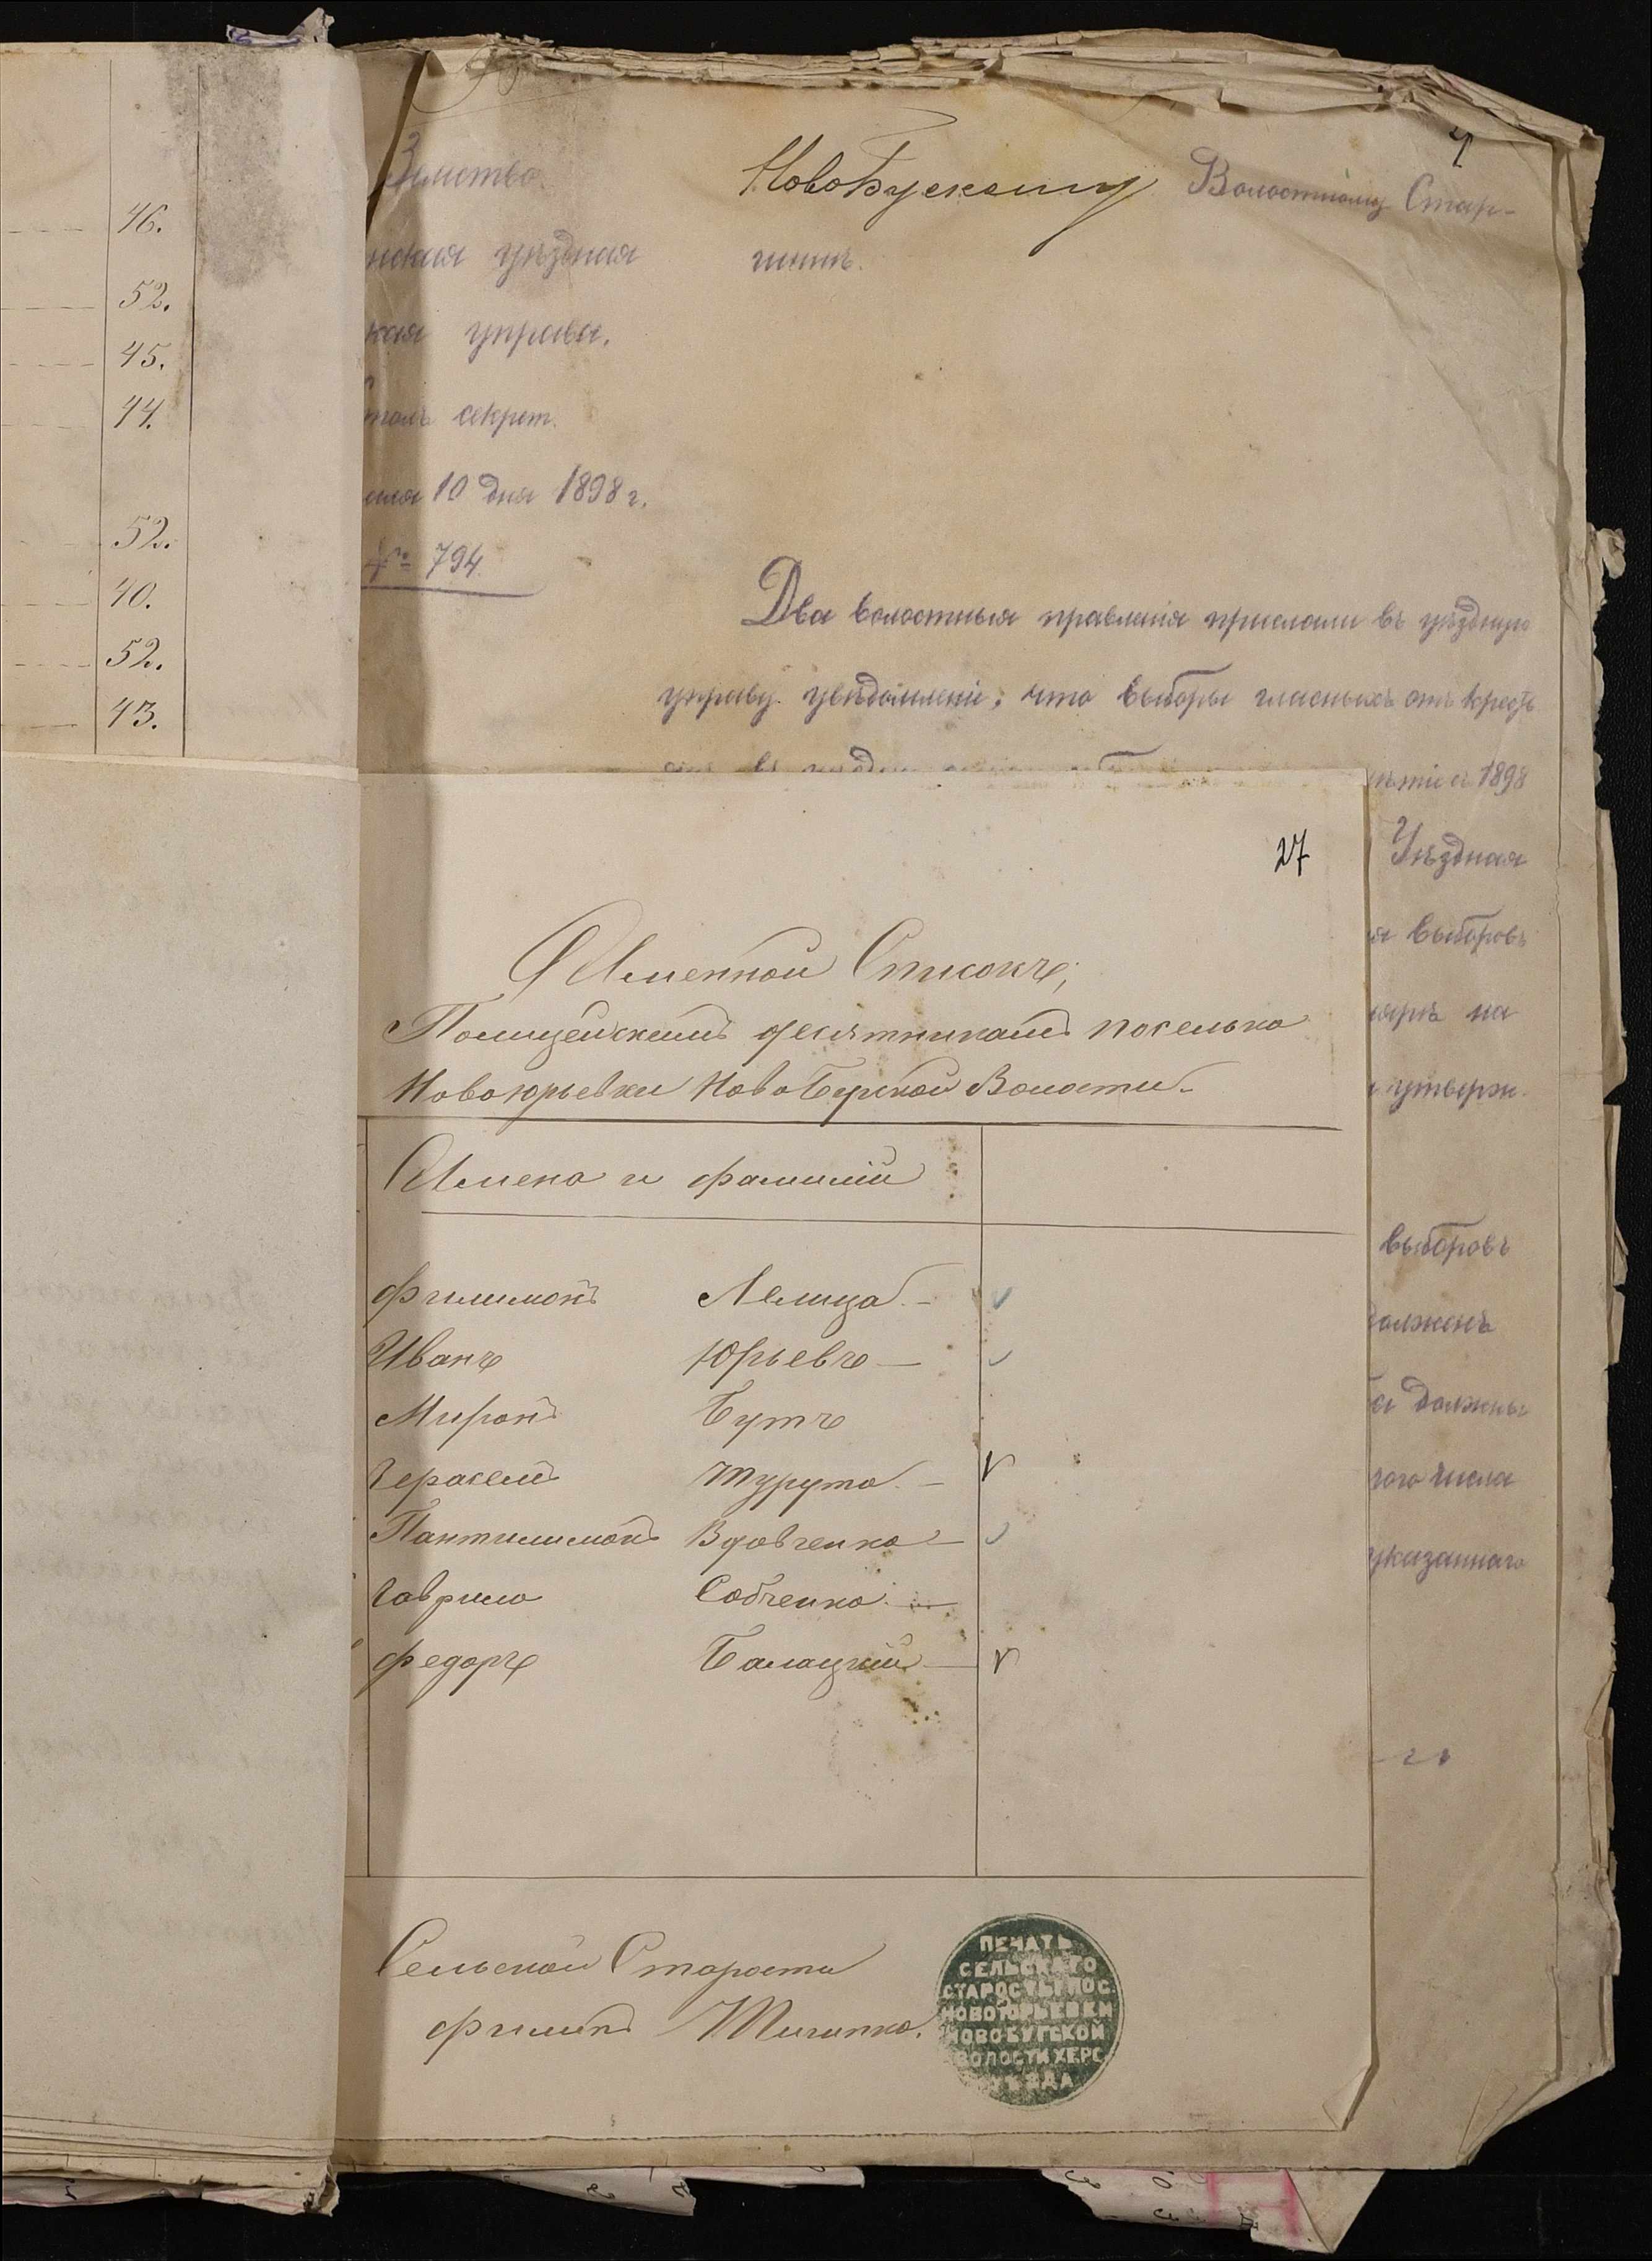 46.
52.
45.
44.
52.
40.
52.
43.
Земство.
НовоБугскому Волостному Стар-
шинѣ.
уѣздная
управа.
секрет.
10 дня 1898 г.
№ 794.
Два волостныя правленія прислали въ уѣздную
управу увѣдомленіе, что выборы гласныхъ отъ кресть
1898
Уѣздная
выборовъ
на
утверж-
выборовъ
должны
числа
указаннаго
27
Именной Списокъ,
Полицейскимъ десятникамъ поселька
Новоюрьевки НовоБугской Волости.
Имена и фамиліи
Филимонъ Лемица. -
Иванъ Юрьевъ —
Миронъ Бутъ
Герасемъ Турута. -
Пантилимонъ Вдовченко —
Гаврило Собченко. —
Федоръ Балацкій —
Сельской Староста
Филипъ
ПЕЧАТЬ
СЕЛЬСКАГО
СТАРОСТЫ ПОС.
НОВОЮРЬЕВКИ
НОВОБУГСКОЙ
ВОЛОСТИ ХЕРС.
УѢЗДА